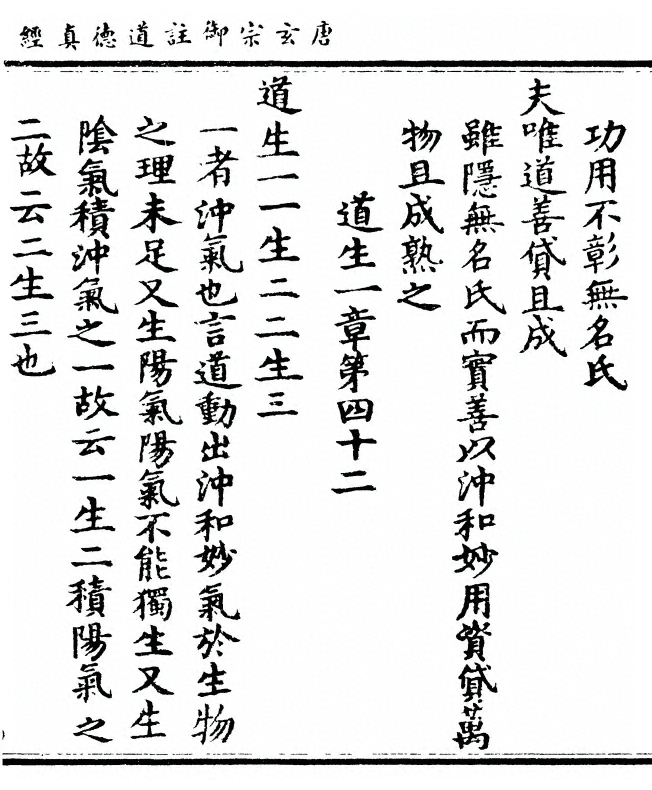 唐玄宗御註道德真經
功用不彰無名氏
夫唯道善貸且成
雖隱無名氏而實善以沖和妙用資貸萬
物且成熟之
道生一章第四十二
道生一一生二二生三
一者沖氣也言道動出沖和妙氣於生物
之理未足又生陽氣陽氣不能獨生又生
陰氣積沖氣之一故云一生二積陽氣之
二故云二生三也